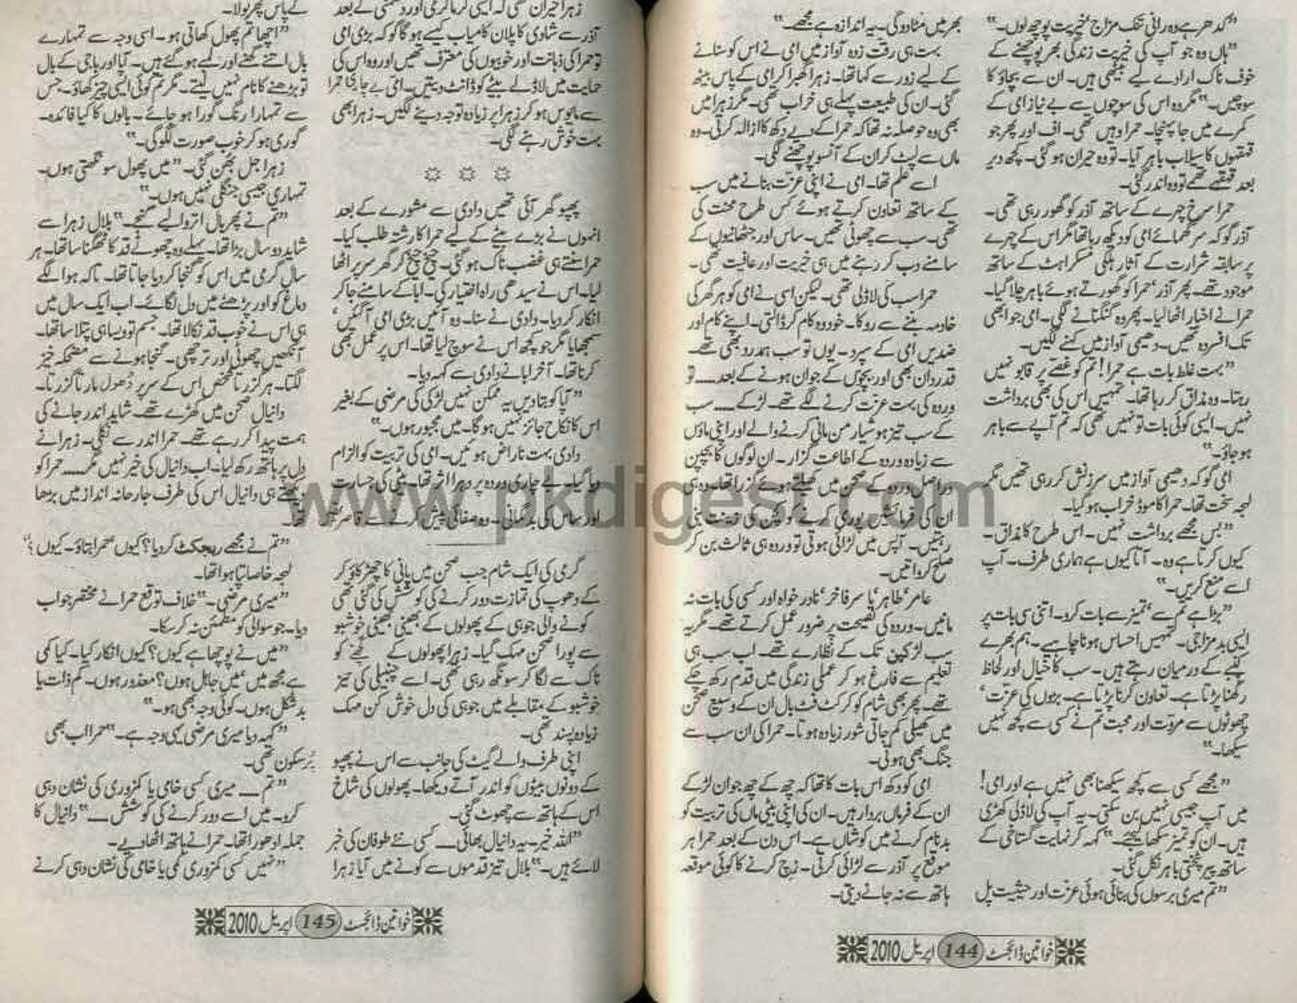 "کدھر ہے وہ رانی تنک مزاج خیریت پوچھ لوں۔"
"ہاں وہ جو آپ کی خیریت زندگی بھر پوچھنے کے
خوف ناک ارادے لیے بیٹھی ہیں۔ ان سے بچاؤ کا
سوچیں۔" مگر وہ اس کی سوچوں سے بے نیاز امی کے
کمرے میں جا پہنچا۔ حمرا وہیں تھی۔ اف اور پھر جو
قہقہوں کا سیلاب باہر آیا۔ تو وہ حیران ہو گئی۔ کچھ دیر
بعد قہقہے تھمے تو وہ اندر گئی۔
حمرا سرخ چہرے کے ساتھ آذر کو گھور رہی تھی۔
آذر گو کہ سر گھمائے امی کو دیکھ رہا تھا مگر اس کے چہرے
پر سابقہ شرارت کے آثار ہلکی مسکراہٹ کے ساتھ
موجود تھے۔ پھر آذر، حمرا کو گھورتے ہوئے باہر چلا گیا۔
حمرا نے اخبار اٹھا لیا۔ پھر وہ گنگنانے لگی۔ امی جو ابھی
تک افسردہ تھیں۔ دھیمی آواز میں کہنے لگیں۔
"بہت غلط بات ہے حمرا! تم کو غصے پر قابو نہیں
رہتا۔ وہ مذاق کر رہا تھا۔ تمہیں اس کی بھی برداشت
نہیں۔ ایسی کوئی بات تو نہیں تھی کہ تم آپے سے باہر
ہو جاؤ۔"
امی گو کہ دھیمی آواز میں سرزنش کر رہی تھیں مگر
لہجہ سخت تھا۔ حمرا کا موڈ خراب ہو گیا۔
"بس مجھے برداشت نہیں۔ اس طرح کا مذاق۔
کیوں کرتا ہے وہ۔ آتا کیوں ہے ہماری طرف۔ آپ
اسے منع کریں۔"
"بڑا ہے تم سے، تمیز سے بات کرو۔ اتنی سی بات پر
ایسی بد مزاجی۔ تمہیں احساس ہونا چاہیے۔ ہم بھرے
کنبے کے درمیان رہتے ہیں۔ سب کا خیال اور لحاظ
رکھنا پڑتا ہے۔ تعاون کرنا پڑتا ہے۔ بڑوں کی عزت،
چھوٹوں سے مروت اور محبت تم نے کسی سے کچھ نہیں
سیکھا۔"
"مجھے کسی سے کچھ سیکھنا بھی نہیں ہے اور امی!
میں آپ جیسی نہیں بن سکتی۔ یہ آپ کی لاڈلی کھڑی
ہیں۔ ان کو تمیز سکھا لیجئے۔" کہہ کر نہایت گستاخی کے
ساتھ پیر پٹختی باہر نکل گئی۔
"تم میری برسوں کی بنائی ہوئی عزت اور حیثیت پل
بھر میں مٹا دو گی۔ یہ اندازہ ہے مجھے۔"
بہت ہی رقت زدہ آواز میں امی نے اس کو سنانے
کے لیے زور سے کہا تھا۔ زہرا گھبرا کر امی کے پاس بیٹھ
گئی۔ ان کی طبیعت پہلے ہی خراب تھی۔ مگر زہرا میں
بھی وہ حوصلہ نہ تھا کہ حمرا کے دیے دکھ کا ازالہ کرتی۔ وہ
ماں سے لپٹ کر ان کے آنسو پونچھنے لگی۔
اسے علم تھا۔ امی نے اپنی عزت بنانے میں سب
کے ساتھ تعاون کرتے ہوئے کس طرح محنت کی
تھی۔ سب سے چھوٹی تھیں۔ ساس اور جٹھانیوں کے
سامنے دب کر رہنے میں ہی خیریت اور عافیت تھی۔
حمرا سب کی لاڈلی تھی۔ لیکن اسی نے امی کو ہر گھر کی
خادمہ بننے سے روکا۔ خود وہ کام کر ڈالتی۔ اپنے کام اور
ضدیں امی کے سپرد۔ یوں تو سب ہمدرد بھی تھے۔
قدردان بھی اور بچوں کے جوان ہونے کے بعد ـــــ تو
وردہ کی بہت عزت کرنے لگے تھے۔ لڑکے ـــــ سب
کے سب تیز ہوشیار من مانی کرنے والے اور اپنی ماؤں
سے زیادہ وردہ کے اطاعت گزار۔ ان لوگوں کا بچپن
دراصل وردہ کے صحن میں کھیلتے ہوئے گزرا تھا۔ وہ ہی
ان کی فرمائشیں پوری کرنے کو کچن کی زینت بنی
رہتیں۔ آپس میں لڑائی ہوتی تو وردہ ہی ثالث بن کر
صلح کرواتیں۔
عامر، طاہر، یا سرفاخر، نادر خواہ اور کسی کی بات نہ
مانیں۔ وردہ کی نصیحت پر ضرور عمل کرتے تھے۔ مگر یہ
سب لڑکپن تک کے نظارے تھے۔ اب سب ہی
تعلیم سے فارغ ہو کر عملی زندگی میں قدم رکھ چکے
تھے۔ پھر بھی شام کو کرکٹ فٹ بال ان کے وسیع صحن
میں کھیلی کم جاتی شور زیادہ ہوتا۔ حمرا کی ان سب سے
جنگ بھی ہوتی۔
امی کو دکھ اس بات کا تھا کہ چھ کے چھ جوان لڑکے
ان کے فرماں بردار ہیں۔ ان کی اپنی بیٹی ماں کی تربیت کو
بدنام کرنے میں کوشاں ہے۔ اس دن کے بعد حمرا ہر
موقع پر آذر سے لڑائی کرتی۔ زچ کرنے کا کوئی موقعہ
ہاتھ سے نہ جانے دیتی۔
خواتین ڈائجسٹ 144 اپریل 2010
زہرا حیران تھی کہ ایسی گرما گرمی اور دشمنی کے بعد
آذر سے شادی کا پلان کامیاب کیسے ہو گا گو کہ بڑی امی
تو حمرا کی ذہانت اور خوبیوں کی معترف تھیں اور وہ اس کی
حمایت میں لاڈلے بیٹے کو ڈانٹ دیتیں۔ امی بے چاری حمرا
سے مایوس ہو کر زہرا پر زیادہ توجہ دینے لگیں۔ زہرا بھی
بہت خوش رہنے لگی۔
پھپو گھر آئی تھیں دادی سے مشورے کے بعد
انہوں نے بڑے بیٹے کے لیے حمرا کا رشتہ طلب کیا۔
حمرا سنتے ہی غضب ناک ہو گئی۔ چیخ چیخ کر گھر سر پر اٹھا
لیا۔ اس نے سیدھی راہ اختیار کی۔ ابا کے سامنے جا کر
انکار کر دیا۔ دادی نے سنا۔ وہ آئیں بڑی امی آگئیں،
سمجھایا مگر جو کچھ اس نے سوچ لیا تھا۔ اس پر عمل بھی
کرنا تھا۔ آخر ابا نے دادی سے کہہ دیا۔
"آپا کو بتا دیں یہ ممکن نہیں لڑکی کی مرضی کے بغیر
اس کا نکاح جائز نہیں ہو گا۔ میں مجبور ہوں۔"
دادی بہت ناراض ہوئیں۔ امی کی تربیت کو الزام
دیا گیا۔ بے چاری وردہ پر دہرا اثر تھا۔ بیٹی کی جسارت
اور ساس کی بدگمانی۔ وہ صفائی پیش کرنے سے قاصر
گرمی کی ایک شام جب صحن میں پانی کا چھڑکاؤ کر
کے دھوپ کی تمازت دور کرنے کی کوشش کی گئی تھی
کونے والی جوہی کے پھولوں کے بھینی بھینی خوشبو
سے پورا صحن مہک گیا۔ زہرا پھولوں کے گچھے کو
ناک سے لگا کر سونگھ رہی تھی۔ اسے چنبیلی کی تیز
خوشبو کے مقابلے میں جوہی کی دل خوش کن مہک
زیادہ پسند تھی۔
اپنی طرف والے گیٹ کی جانب سے اس نے پھپو
کے دونوں بیٹوں کو اندر آتے دیکھا۔ پھولوں کی شاخ
اس کے ہاتھ سے چھوٹ گئی۔
"اللہ خیر۔ یہ دانیال بھائی ـــــ کسی نئے طوفان کی خبر
لائے ہیں۔" بلال تیز قدموں سے کونے میں آیا زہرا
کے پاس پھر بولا۔
"اچھا تم پھول کھاتی ہو۔ اسی وجہ سے تمہارے
بال اتنے گھنے اور لمبے ہو گئے ہیں۔ آپا اور باجی کے بال
تو بڑھنے کا نام نہیں لیتے۔ مگر تم کوئی ایسی چیز کھاؤ۔ جس
سے تمہارا رنگ گورا ہو جائے۔ بالوں کا کیا فائدہ۔
گوری ہو کر خوب صورت لگو گی۔"
زہرا جل بھن گئی۔ "میں پھول سونگھتی ہوں۔
تمہاری جیسی جنگلی نہیں ہوں۔"
"تم نے پھر بال اتروا لیے گنجے۔" بلال زہرا سے
شاید دو سال بڑا تھا۔ پہلے وہ چھوٹے قد کا ٹھگنا سا تھا۔ ہر
سال گرمی میں اس کو گنجا کر دیا جاتا تھا۔ تاکہ ہوا لگے
دماغ کو اور پڑھنے میں دل لگائے۔ اب ایک سال میں
ہی اس نے خوب قد نکالا تھا۔ جسم تو ویسا ہی پتلا سا تھا۔
آنکھیں چھوٹی اور ترچھی۔ گنجا ہونے سے مضحکہ خیز
لگتا۔ ہر گزرتا شخص اس کے سر پر دھول مارنا گزرتا۔
دانیال صحن میں کھڑے تھے۔ شاید اندر جانے کی
ہمت پیدا کر رہے تھے۔ حمرا اندر سے نکلی۔ زہرا نے
دل پر ہاتھ رکھ لیا۔ اب دانیال کی خیر نہیں مگر ـــــ حمرا کو
دیکھتے ہی دانیال اس کی طرف جارحانہ انداز میں بڑھا
تھا۔
"تم نے مجھے ریجکٹ کر دیا؟ کیوں حمرا بتاؤ۔ کیوں؟"
لہجہ خاصا تپا ہوا تھا۔
"میری مرضی۔" خلاف توقع حمرا نے مختصر جواب
دیا۔ جو سوالی کو مطمئن نہ کر سکا۔
"میں نے پوچھا ہے کیوں؟ کیوں انکار کیا۔ کیا کمی
ہے مجھ میں، میں جاہل ہوں؟ معذور ہوں۔ کم ذات یا
بد شکل ہوں۔ کوئی وجہ بھی ہو۔"
"کہہ دیا میری مرضی یہی وجہ ہے۔" حمرا اب بھی
پرسکون تھی۔
"تم ـــــ میری کسی خامی یا کمزوری کی نشان دہی
کرو۔ میں اسے دور کرنے کی کوشش ـــــ" دانیال کا
جملہ ادھورا تھا۔ حمرا نے ہاتھ اٹھا دیے۔
"نہیں کسی کمزوری کمی یا خامی کی نشان دہی کرنے
خواتین ڈائجسٹ 145 اپریل 2010
www.pkdigest.com